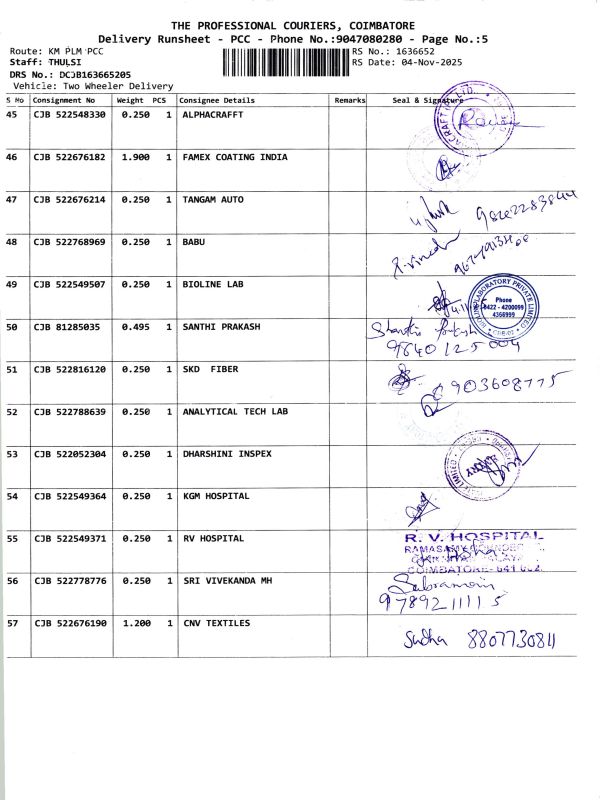 THE PROFESSIONAL COURIERS, COIMBATORE
Delivery Runsheet - PCC - Phone No.:9047080280 - Page No.:5
Route: KM PLM PCC RS No.: 1636652
Staff: THULSI RS Date: 04-Nov-2025
DRS No.: DCJB163665205
Vehicle: Two Wheeler Delivery
S No Consignment No Weight PCS Consignee Details Remarks Seal & Signature
45 CJB 522548330 0.250 1 ALPHACRAFFT
46 CJB 522676182 1.900 1 FAMEX COATING INDIA
47 CJB 522676214 0.250 1 TANGAM AUTO
48 CJB 522768969 0.250 1 BABU
49 CJB 522549507 0.250 1 BIOLINE LAB
LABORATORY PRIVATE LIMITED
Phone
0422 - 4200099
4366999
50 CJB 81285035 0.495 1 SANTHI PRAKASH
9840125004
51 CJB 522816120 0.250 1 SKD FIBER
903608775
52 CJB 522788639 0.250 1 ANALYTICAL TECH LAB
53 CJB 522052304 0.250 1 DHARSHINI INSPEX
54 CJB 522549364 0.250 1 KGM HOSPITAL
55 CJB 522549371 0.250 1 RV HOSPITAL
R. V. HOSPITAL
COIMBATORE- 641 002.
56 CJB 522778776 0.250 1 SRI VIVEKANDA MH
9789211115
57 CJB 522676190 1.200 1 CNV TEXTILES
Sudha 8807730811